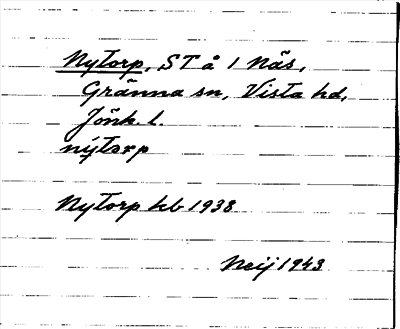 Nytorp, ST å 1 Näs,
Gränna sn, Vista hd,
Jönk l.
nýtårp
Nytorp kb 1938
Neij 1943